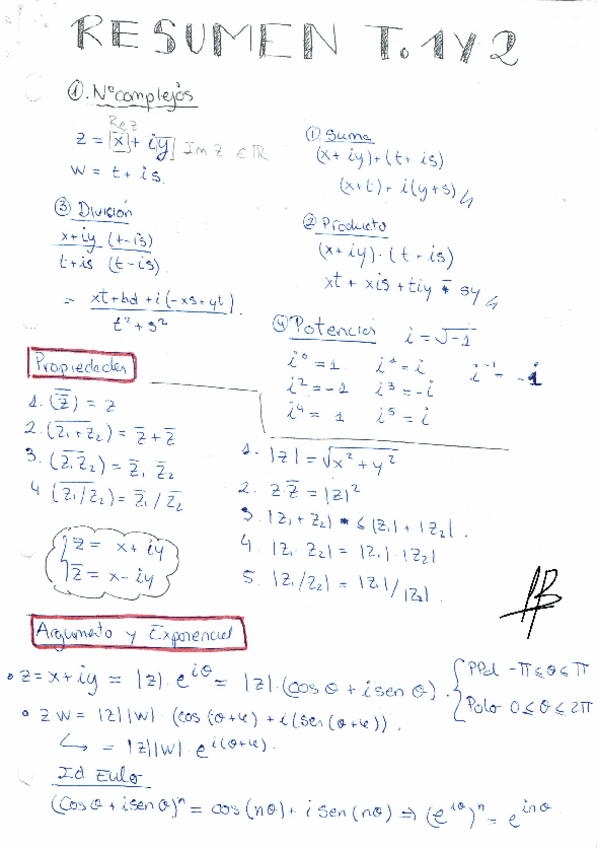 RESUMEN T. 1 Y 2
①. Nº complejos
Re z
z = |x| + i|y| Im z ∈ ℝ
w = t + is.
① Suma
(x+iy)+(t+is)
(x+t)+i(y+s)
③ División
x+iy (t-is)
t+is (t-is)
= xt+bd+i(-xs+yt)
t²+s²
② Producto
(x+iy)·(t+is)
xt + xis + tiy - sy
④ Potencias i = √-1
i⁰ = 1 i¹ = i i⁻¹ = -i
i² = -1 i³ = -i
i⁴ = 1 i⁵ = i
Propiedades
1. (z̅̅) = z
2. (z₁+z₂)‾ = z̅ + z̅
3. (z₁z₂)‾ = z̅₁ z̅₂
4 (z₁/z₂)‾ = z̅₁ / z̅₂
z = x + iy
z̅ = x - iy
1. |z| = √x²+y²
2. z·z̅ = |z|²
3. |z₁+z₂| ≤ |z₁| + |z₂|.
4. |z₁·z₂| = |z₁|·|z₂|
5. |z₁/z₂| = |z₁|/|z₂|.
Argumento y Exponencial
• z = x+iy = |z|·e^{iθ} = |z|·(cos θ + i sen θ).
PPal -π ≤ θ ≤ π
Polo 0 ≤ θ ≤ 2π
• zw = |z||w|·(cos(θ+φ) + i(sen(θ+φ)).
↳ = |z||w|·e^{i(θ+φ)}.
Id Euler
(cos θ + i sen θ)ⁿ = cos(nθ) + i sen(nθ) ⇒ (e^{iθ})ⁿ = e^{inθ}